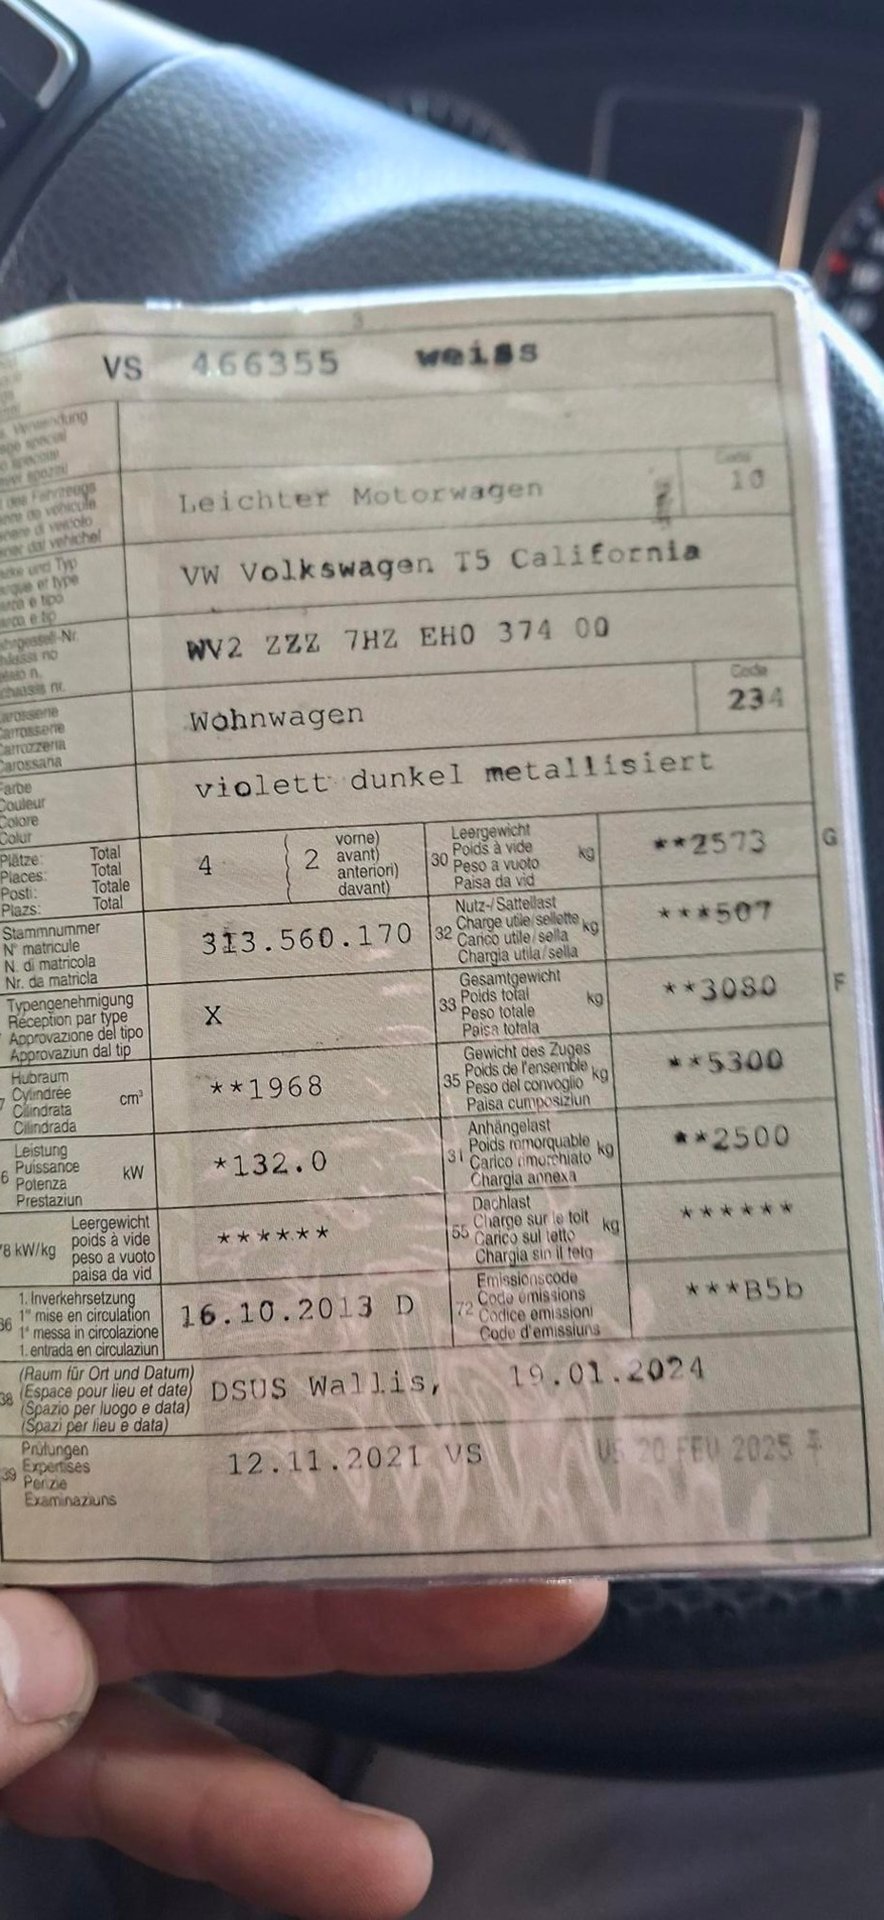 VS 466355 weiss
Verwendung
Code
Leichter Motorwagen 10
VW Volkswagen T5 California
WV2 ZZZ 7HZ EH0 374 00
Code
Wohnwagen 234
Carrosserie
Carrozzeria
violett dunkel metallisiert
Farbe
Couleur
Colore
Colur
Plätze: Total
Places: Total
Posti: Totale
Plazs: Total
4
2
vorne)
avant)
anteriori)
davant)
30 Leergewicht
Poids à vide kg
Peso a vuoto
Paisa da vid
**2573
G
Stammnummer
N° matricule
N. di matricola
Nr. da matricla
313.560.170
32 Nutz-/Sattellast
Charge utile/sellette kg
Carico utile/sella
Chargia utila/sella
***507
Typengenehmigung
Réception par type
Approvazione del tipo
Approvaziun dal tip
X
33 Gesamtgewicht
Poids total kg
Peso totale
Paisa totala
**3080
F
Hubraum
Cylindrée cm³
Cilindrata
Cilindrada
**1968
35 Gewicht des Zuges
Poids de l'ensemble kg
Peso del convoglio
Paisa cumposiziun
**5300
Leistung
Puissance kW
Potenza
Prestaziun
*132.0
31 Anhängelast
Poids remorquable kg
Carico rimorchiato
Chargia annexa
**2500
Leergewicht
kW/kg poids à vide
peso a vuoto
paisa da vid
******
55 Dachlast
Charge sur le toit kg
Carico sul tetto
Chargia sin il tetg
******
36 1. Inverkehrsetzung
1re mise en circulation
1a messa in circolazione
1. entrada en circulaziun
16.10.2013 D
72 Emissionscode
Code émissions
Codice emissioni
Code d'emissiuns
***B5b
38 (Raum für Ort und Datum)
(Espace pour lieu et date)
(Spazio per luogo e data)
(Spazi per lieu e data)
DSUS Wallis, 19.01.2024
39 Prüfungen
Expertises
Perizie
Examinaziuns
12.11.2021 VS
VS 20 FEV 2025